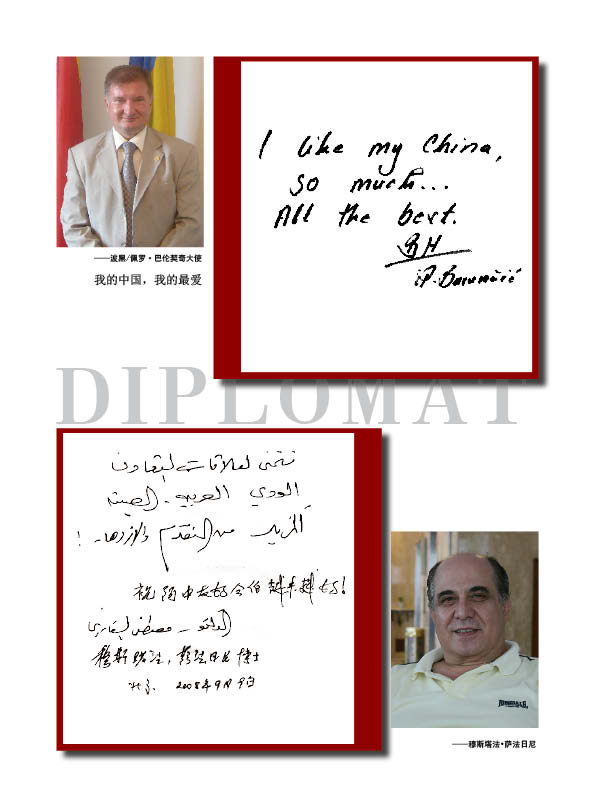 I like my China,
so much...
All the best.
BH
P.
——波黑/佩罗·巴伦契奇大使
我的中国，我的最爱
DIPLOMAT
نتمنى لعلاقات التعاون
الودي العربية - الصينية
المزيد من التقدم والازدهار !
祝 中友好合作越来越好!
الدكتور - مصطفى السفاريني
穆斯塔法·萨法日尼博士
北京 2008年9月9日
LONSDALE
——穆斯塔法·萨法日尼